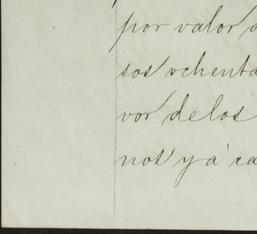 por valor
sos ochenta
vor de los
nos y á ca